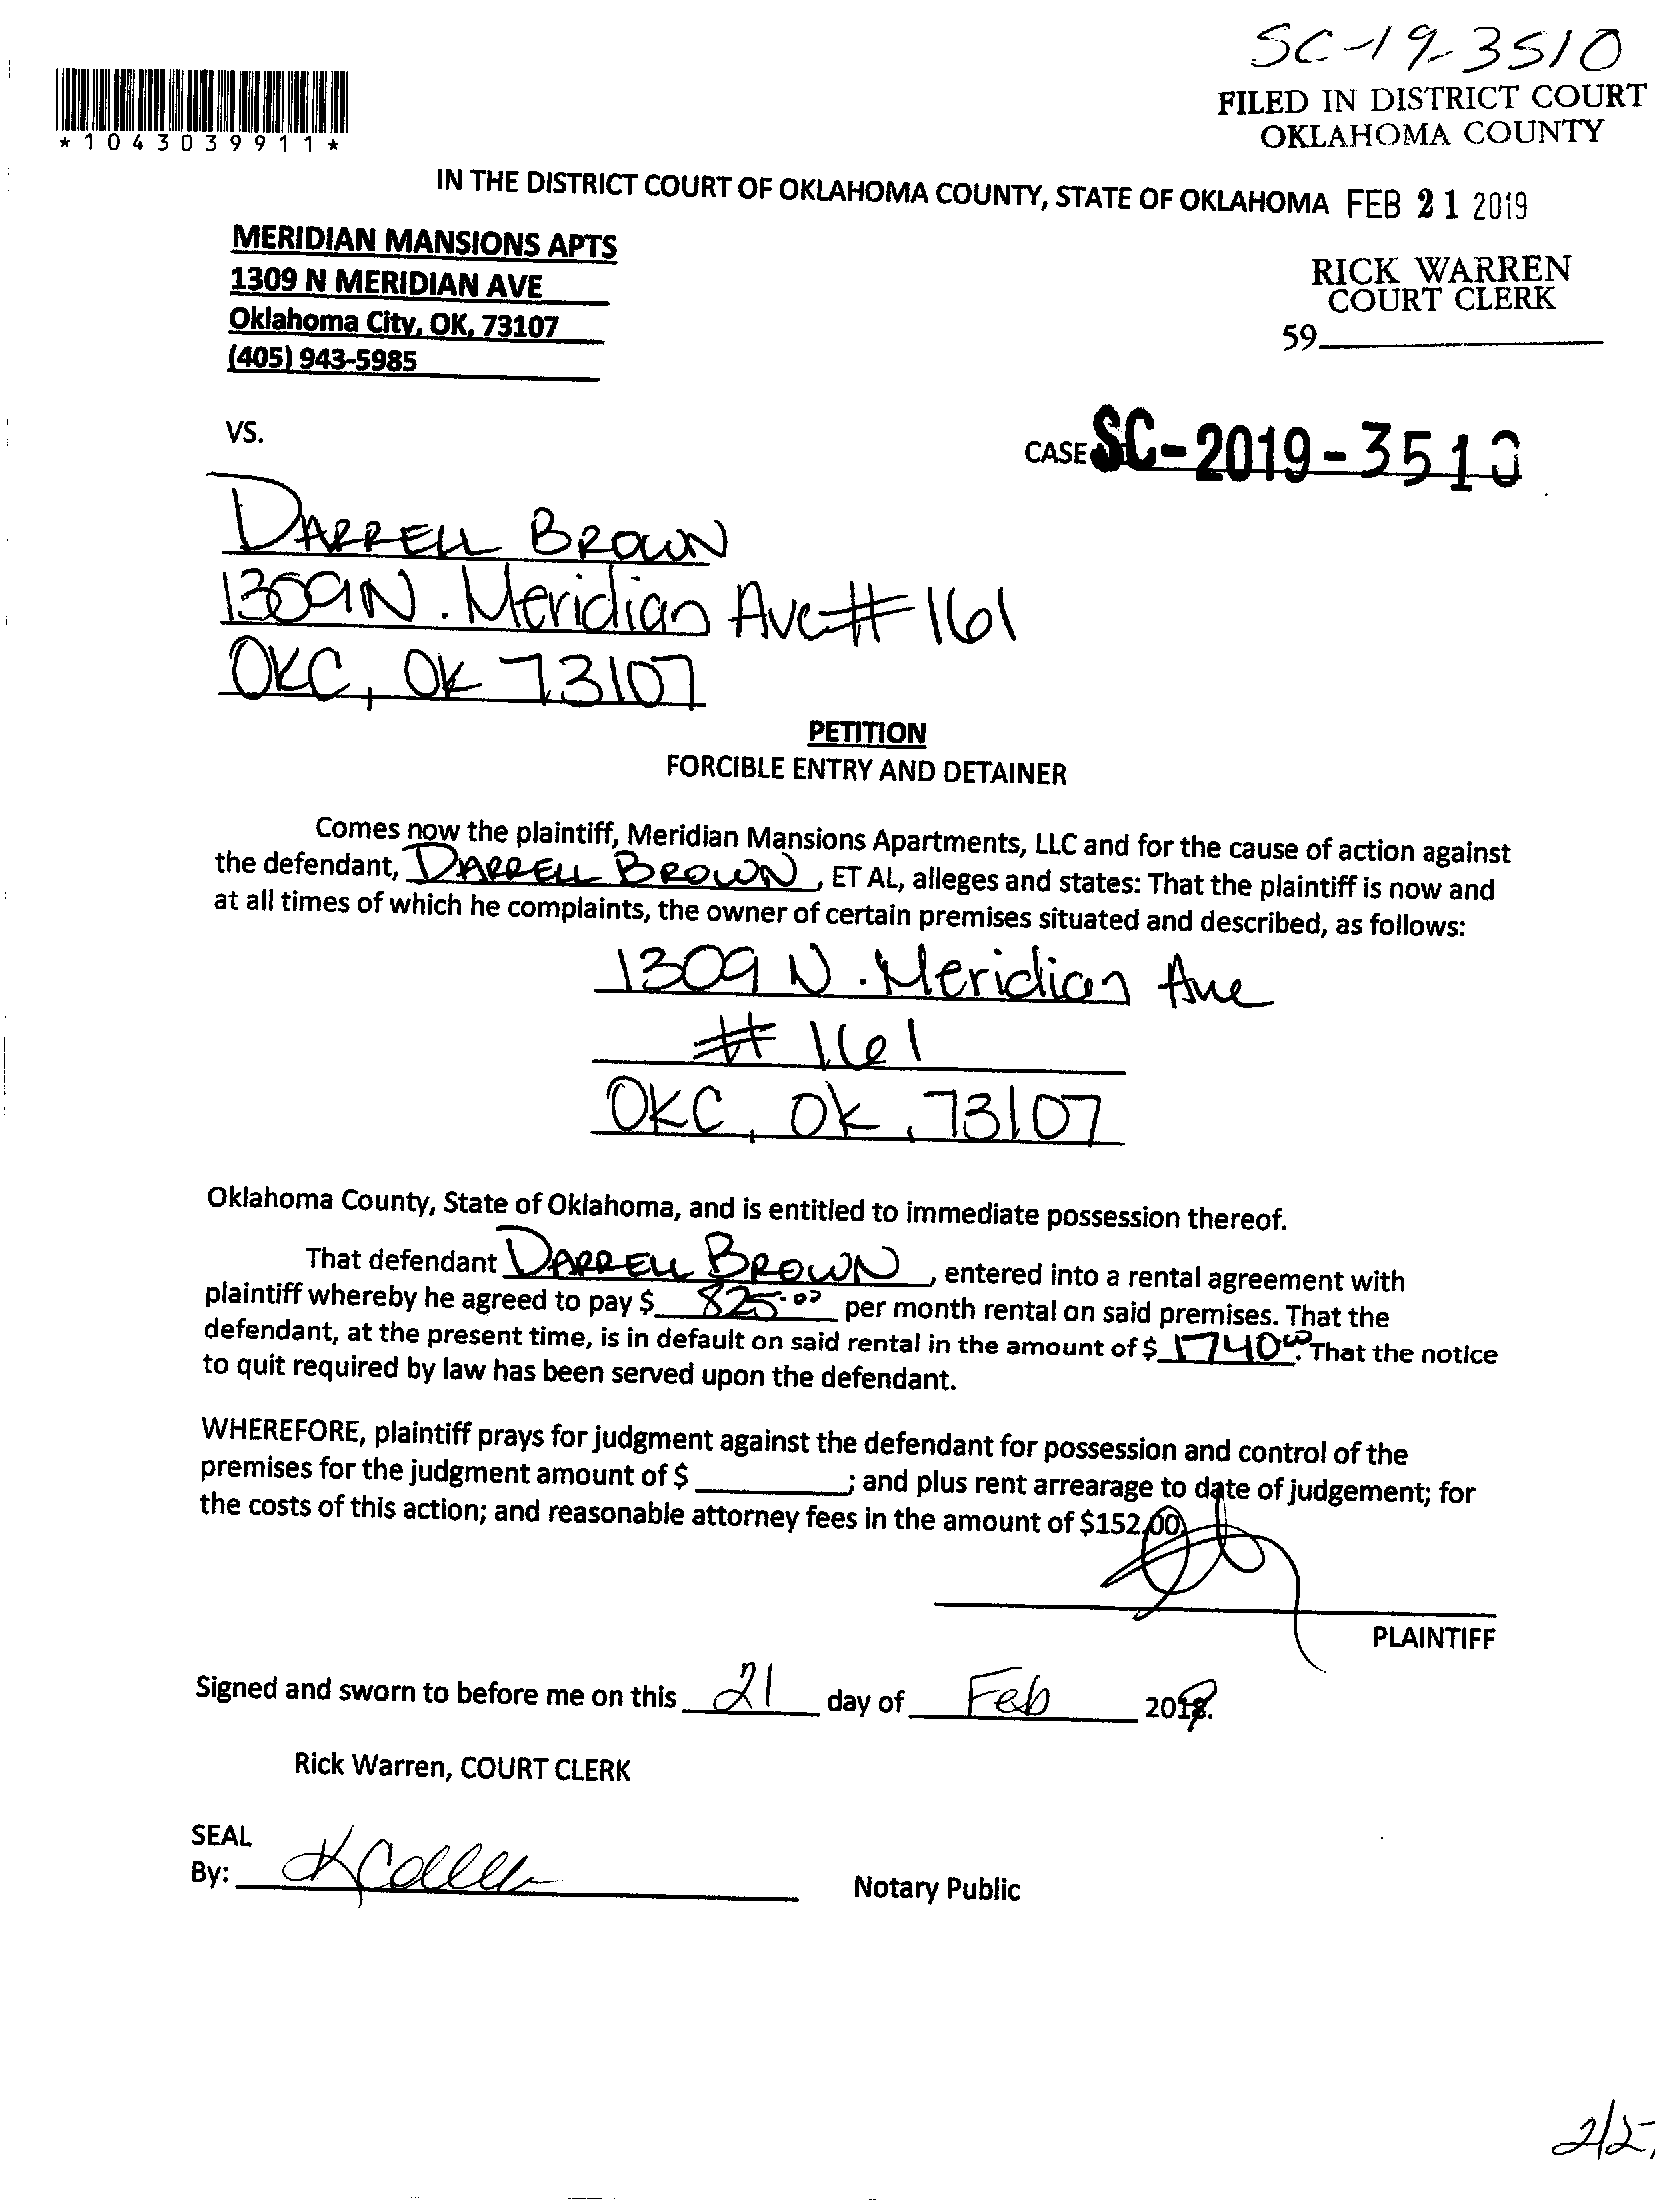 SC-19-3510
FILED IN DISTRICT COURT
OKLAHOMA COUNTY
*1043039911*
IN THE DISTRICT COURT OF OKLAHOMA COUNTY, STATE OF OKLAHOMA FEB 21 2019
MERIDIAN MANSIONS APTS
1309 N MERIDIAN AVE
Oklahoma City, OK, 73107
(405) 943-5985
RICK WARREN
COURT CLERK
59
VS.
CASE SC-2019-3510
DARRELL BROWN
1309 N. Meridian Ave # 161
OKC, OK 73107
PETITION
FORCIBLE ENTRY AND DETAINER
Comes now the plaintiff, Meridian Mansions Apartments, LLC and for the cause of action against
the defendant, DARRELL BROWN, ET AL, alleges and states: That the plaintiff is now and
at all times of which he complaints, the owner of certain premises situated and described, as follows:
1309 N. Meridian Ave
# 161
OKC, OK, 73107
Oklahoma County, State of Oklahoma, and is entitled to immediate possession thereof.
That defendant DARRELL BROWN, entered into a rental agreement with
plaintiff whereby he agreed to pay $ 825.00 per month rental on said premises. That the
defendant, at the present time, is in default on said rental in the amount of $ 1740.00. That the notice
to quit required by law has been served upon the defendant.
WHEREFORE, plaintiff prays for judgment against the defendant for possession and control of the
premises for the judgment amount of $ ________; and plus rent arrearage to date of judgement; for
the costs of this action; and reasonable attorney fees in the amount of $152.00.
PLAINTIFF
Signed and sworn to before me on this 21 day of Feb 2019.
Rick Warren, COURT CLERK
SEAL
By:
Notary Public